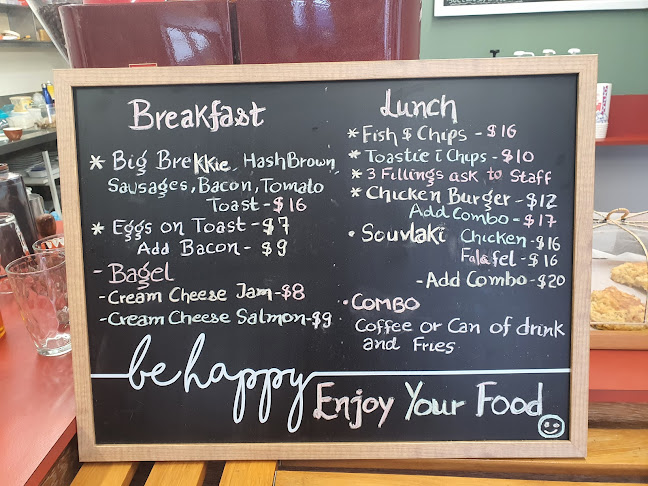 Breakfast
* Big Brekkie, Hash Brown
Sausages, Bacon, Tomato
Toast - $16
* Eggs on Toast - $7
Add Bacon - $9
- Bagel
- Cream Cheese Jam - $8
- Cream Cheese Salmon - $9
Lunch
* Fish & Chips - $16
* Toastie i Chips - $10
* 3 Fillings ask to Staff
* Chicken Burger - $12
Add Combo - $17
• Souvlaki Chicken - $16
Falafel - $16
- Add Combo - $20
• COMBO
Coffee or Can of drink
and Fries
be happy
Enjoy Your Food